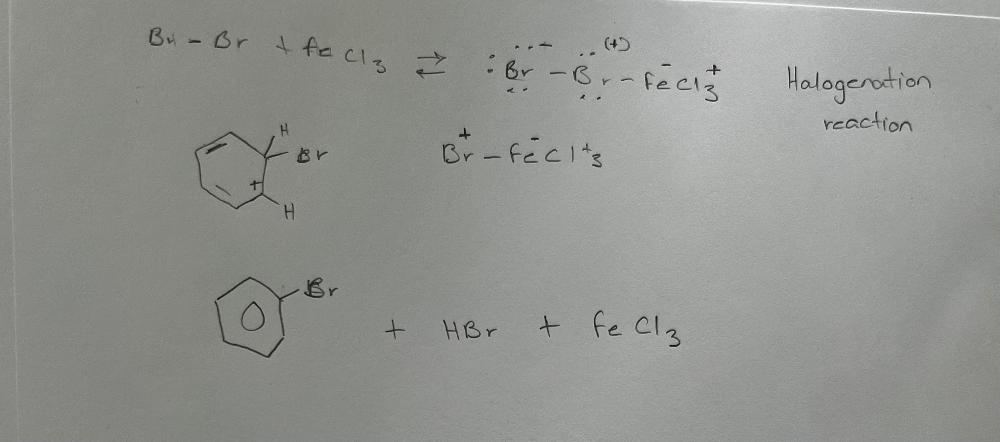 Br - Br + FeCl3 ⇌ :Br̈⁻ - Br̈(+) - Fe⁻Cl3⁺ Halogenation
reaction
H
Br Br⁺ - Fe⁻Cl⁺3
+
H
Br
+ HBr + FeCl3